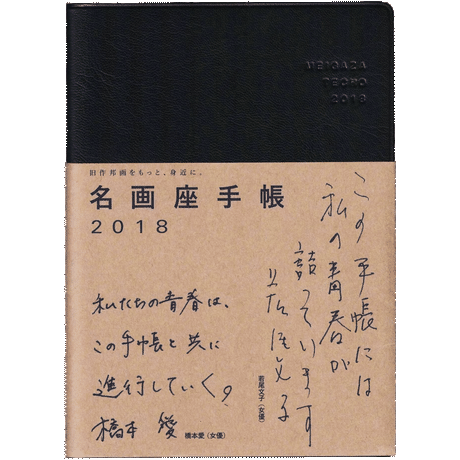 MEIGAZA
TECHO
2018
旧作邦画をもっと、身近に。
名画座手帳
2018
この手帳には
私の青春が
詰っています
若尾文子
若尾文子（女優）
私たちの青春は、
この手帳と共に
進行していく。
橋本 愛
橋本愛（女優）